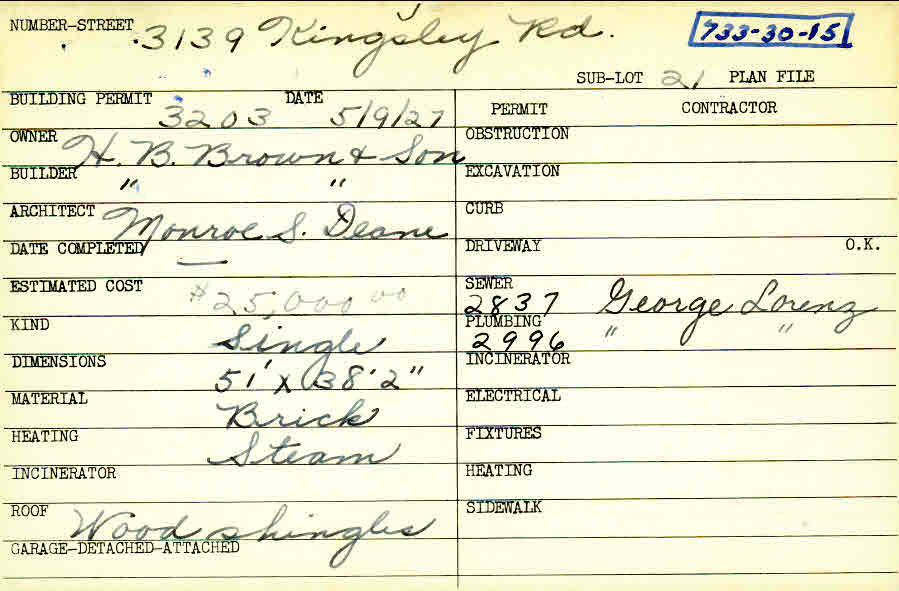 NUMBER-STREET 3139 Kingsley Rd. 733-30-15
SUB-LOT 21 PLAN FILE
BUILDING PERMIT 3203 DATE 5/9/27
OWNER H. B. Brown & Son
BUILDER " "
ARCHITECT Monroe S. Deane
DATE COMPLETED —
ESTIMATED COST $25,000 00
KIND Single
DIMENSIONS 51' x 38'2"
MATERIAL Brick
HEATING Steam
INCINERATOR
ROOF Wood shingles
GARAGE-DETACHED-ATTACHED
PERMIT CONTRACTOR
OBSTRUCTION
EXCAVATION
CURB
DRIVEWAY O.K.
SEWER 2837 George Lorenz
PLUMBING 2996 " "
INCINERATOR
ELECTRICAL
FIXTURES
HEATING
SIDEWALK